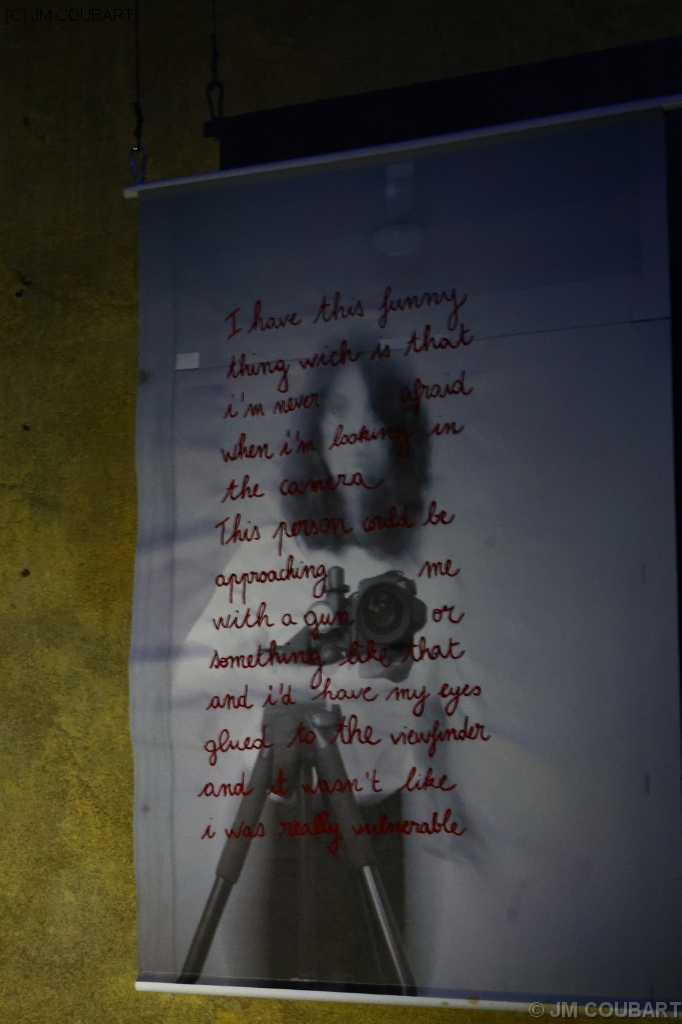 (C) JM COUBART
I have this funny
thing wich is that
i'm never afraid
when i'm looking in
the camera
This person could be
approaching me
with a gun or
something like that
and i'd have my eyes
glued to the viewfinder
and it wasn't like
i was really vulnerable
© JM COUBART